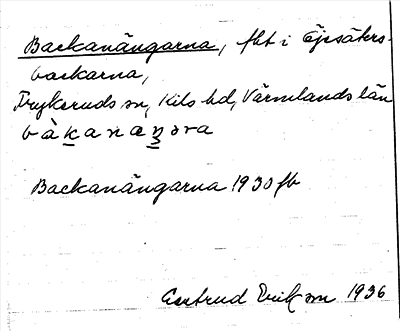 Backanängarna, fbt i Öjesåkers-
backarna,
Frykeruds sn, Kils hd, Värmlands län
Backanängarna 1930 fb
Gertrud Ericson 1936